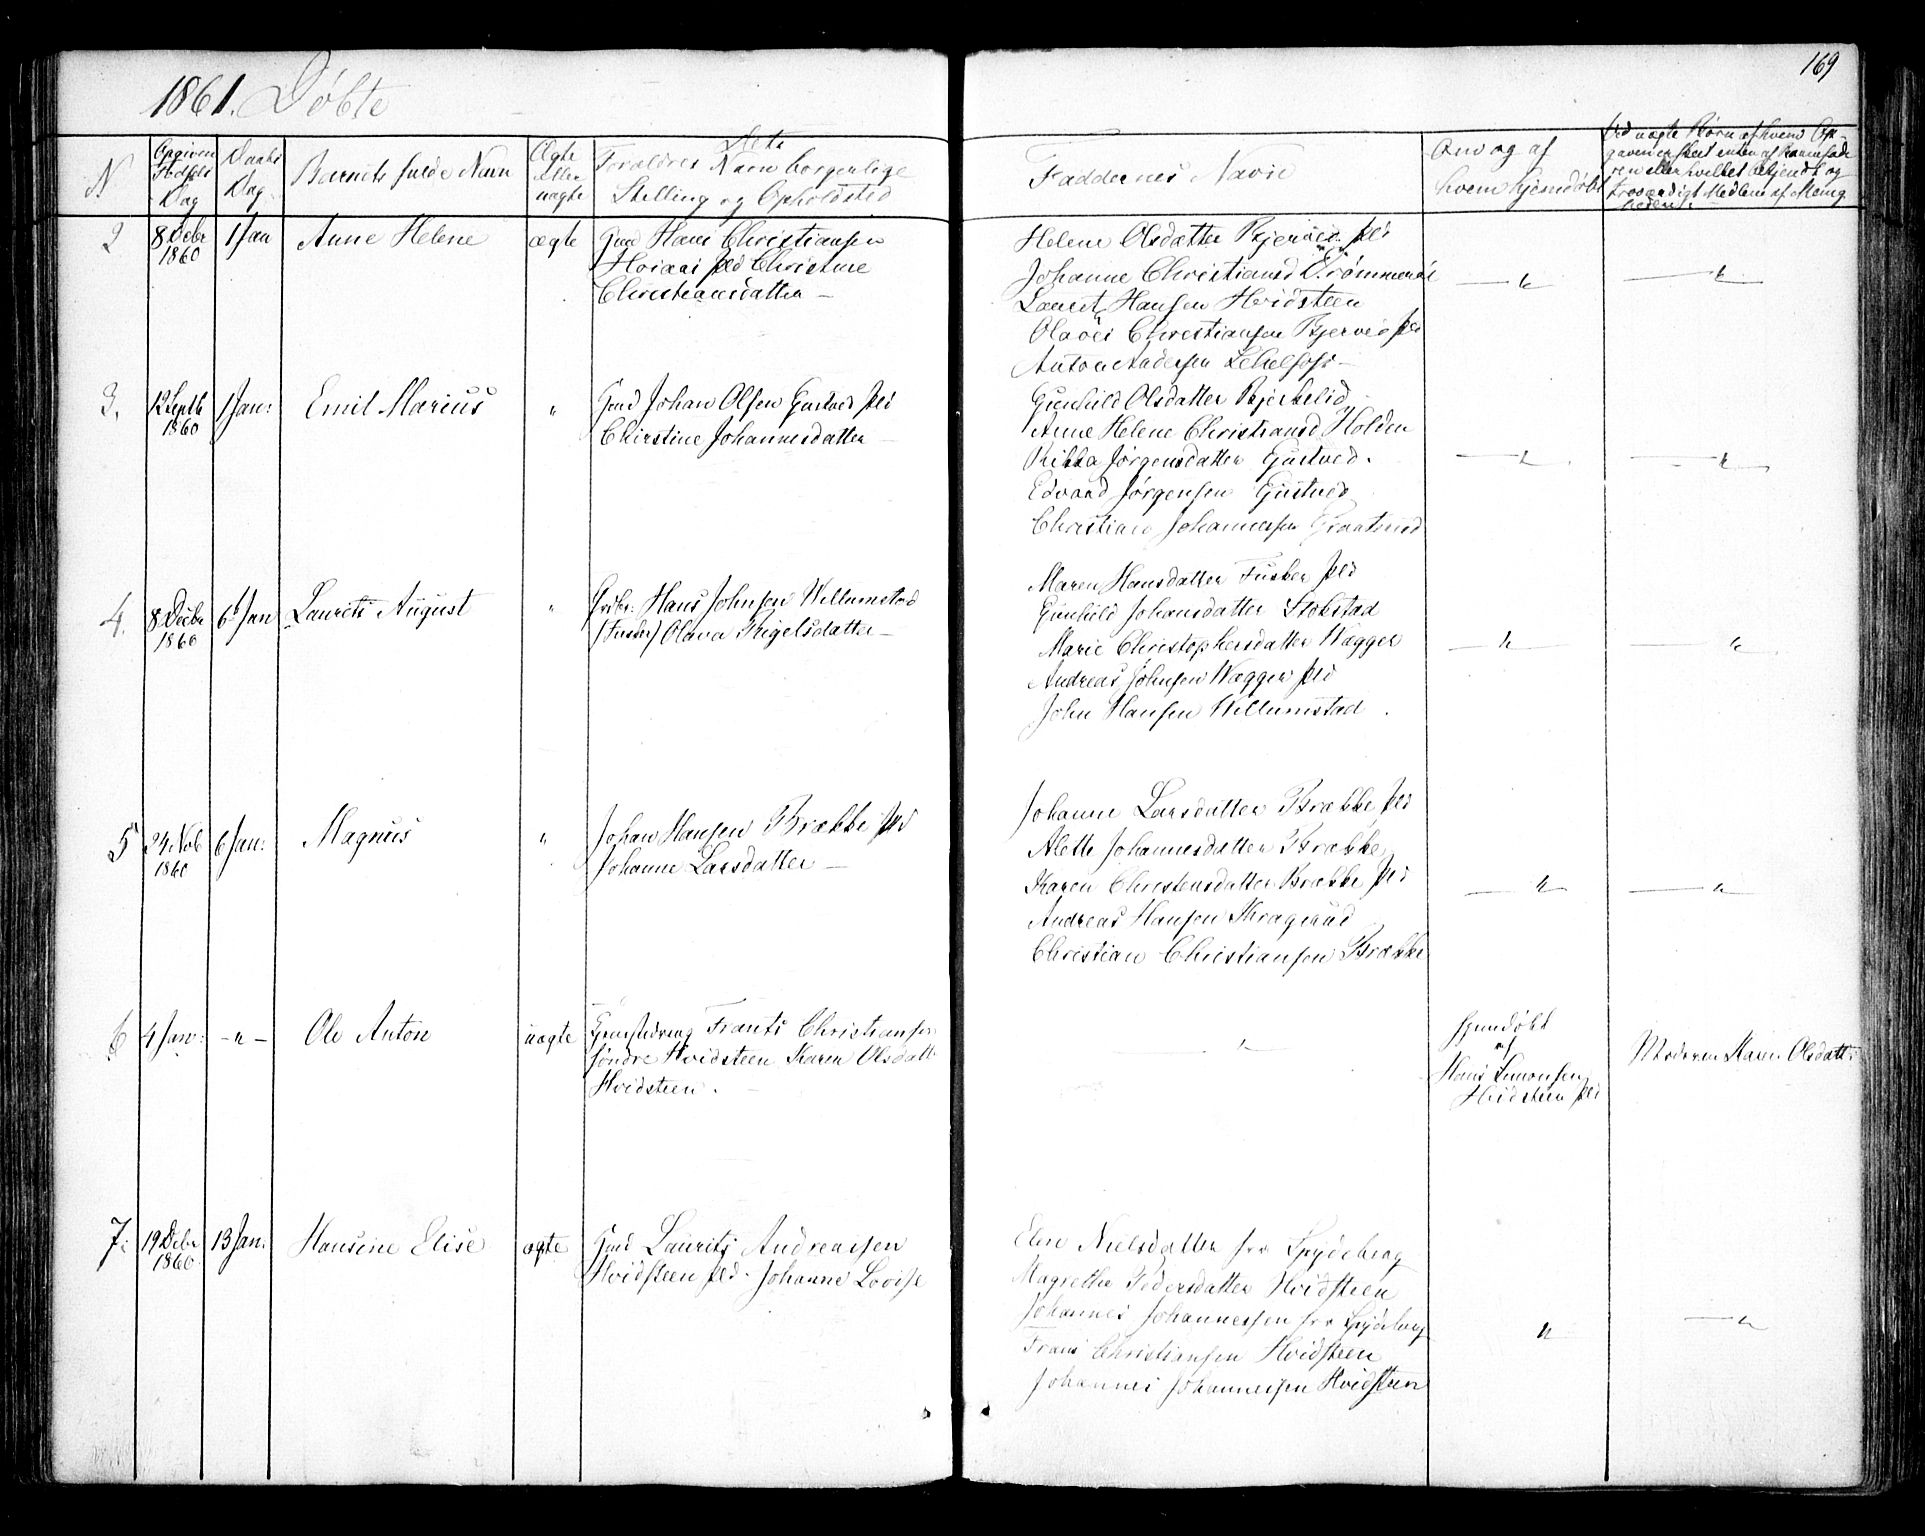 169
1861. Døbte
N
Opgiven Fødsels Dag
Daabs Dag
Barnets fulde Navn
Ægte eller uægte
Forældres Navn borgerlige Stilling og Opholdsted
Faddernes Navne
Om og af hvem hjemdøbt
Ved uægte Børn af hvem Opgaven er skeet enten af Barnefaderen eller hvilket bekjendt og troværdigt Medlem af Menigheden
2
8 Decbr 1860
1 Jan
Anne Helene
ægte
Gmd Hans Christiansen
pld Christine
Christiansdatter –
Helene Olsdatter pld
Johanne Christiansd
Laurits Hansen Hvidsteen
Christiansen pld
Anton Andersen
3.
12 Septb 1860
1 Jan:
Emil Marius
"
Gmd Johan Olsen Gustved pld
Chirstine Johannesdatter –
Gunhild Olsdatter Bjerkelid
Anne Helene Christiansd Holden
Rikka Jørgensdatter Gustved.
Edvard Jørgensen Gustved
Christian Johannesen
4.
8 Decbr 1860
6 Jan
Laurits August
"
Hans Johnsen Willumstad
(Fusker) Olava Trigelsdatter –
Maren Hansdatter Fusker pld
Gunhild Johansdatter Stokstad
Marie Christophersdatter Wægger
Andreas Johnsen Wægger pld
John Hansen Willumstad.
5
24 Nob 1860
6 Jan:
Magnus
"
Johan Hansen Brække pld
Johanne Larsdatter –
Johanne Larsdatter Brække pld
Alette Johannesdatter Brække
Karen Christensdatter Brække pld
Andreas Hansen Kragerud
Christian Christiansen Brække
6
4 Jan:
– " –
Ole Anton
uægte
Frants Christiansen
søndre Hvidsteen Karen Olsdatt
Hvidsteen.
"
hjemdøbt
af
Hans Simonsen
Hvidsteen pld
Moderen Karen Olsdatt:
7:
19 Debr 1860
13 Jan.
Hansine Elise
ægte
Gmd Laurits Andreassen
Hvidsteen pld. Johanne Lovise
Elen Nielsdatter fra Spydeberg
Magrethe Pedersdatter Hvidsteen
Johannes Johannessen fra Spydeberg
Frans Christiansen Hvidsteen
Johannes Johannessen Hvidsteen